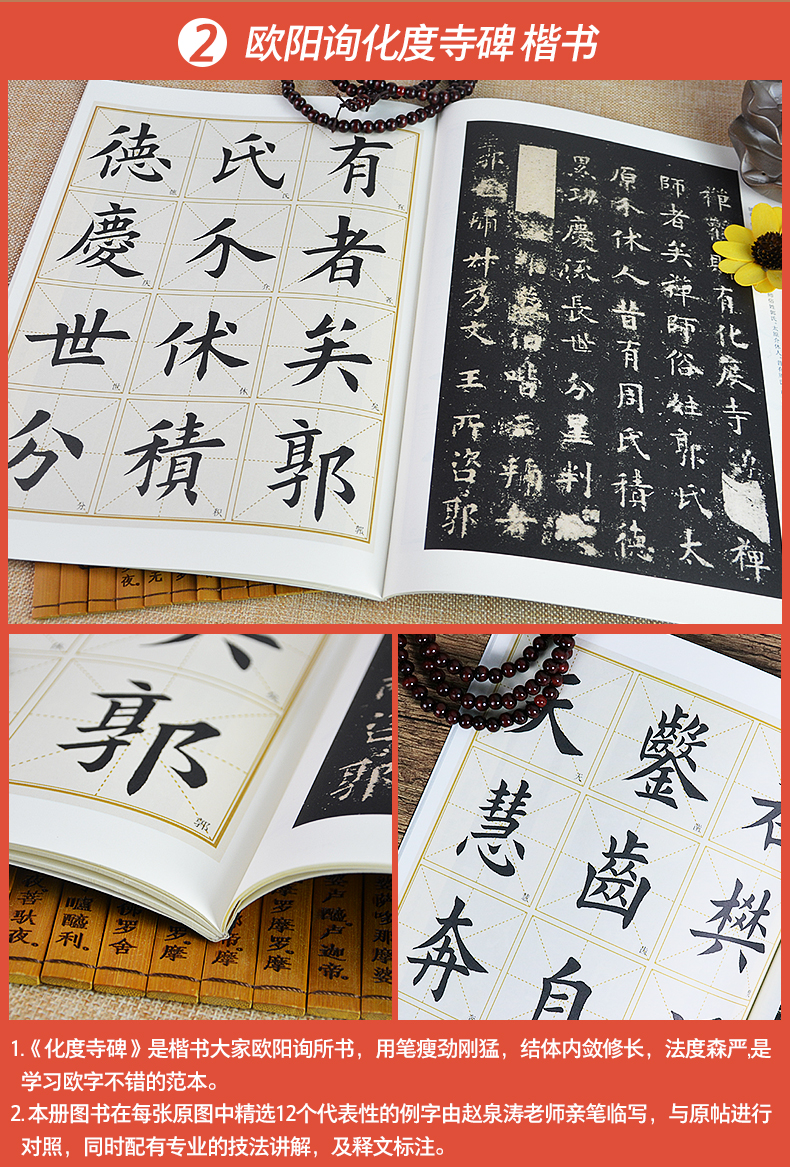 2 欧阳询化度寺碑 楷书
有者矣郭
氏介休積
德慶世分
有化度寺 禪
師者矣禪師俗姓郭氏太
原介休人昔有周氏積德
累功慶流長世分星判
伯喈云
乃文王所咨郭
郭
天鑿石
慧齒樊
奔自
1.《化度寺碑》是楷书大家欧阳询所书，用笔瘦劲刚猛，结体内敛修长，法度森严,是
学习欧字不错的范本。
2. 本册图书在每张原图中精选12个代表性的例字由赵泉涛老师亲笔临写，与原帖进行
对照，同时配有专业的技法讲解，及释文标注。